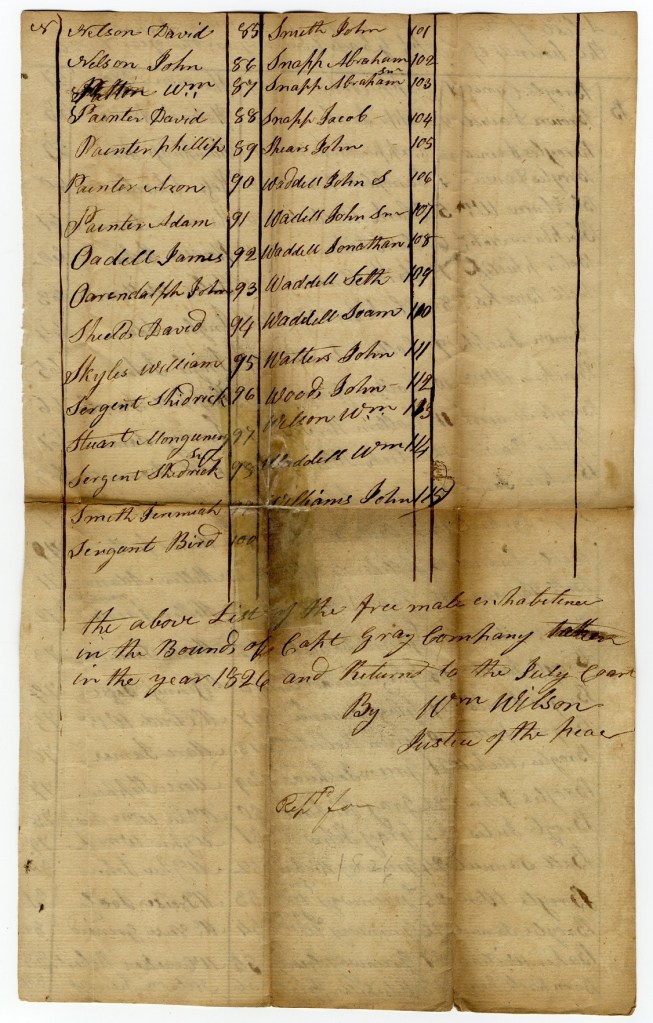 N Nelson David 85
Nelson John 86
Patton Wm 87
Painter David 88
Painter phillip 89
Painter Aron 90
Painter Adam 91
Oadell James 92
Oarendalph John 93
Shields David 94
Skyles William 95
Sergent Shidrick 96
Stuart Mongumery 97
Sergent Shidrick Snr 98
Smith Jerimiah
Sergant Bird 100
Smith John 101
Snapp Abraham 102
Snapp Abraham Snr 103
Snapp Jacob 104
Shears John 105
Waddell John S 106
Wadell John Snr 107
Waddell Jonathan 108
Waddell Seth 109
Waddell 110
Watters John 111
Woods John 112
Wilson Wm 113
Waddell Wm 114
Williams John 115
the above List of the free male enhabitence
in the Bounds of Capt Gray Company taken
in the year 1826 and Returnd to the July Court
By Wm Wilson
Justice of the peace
for
1826